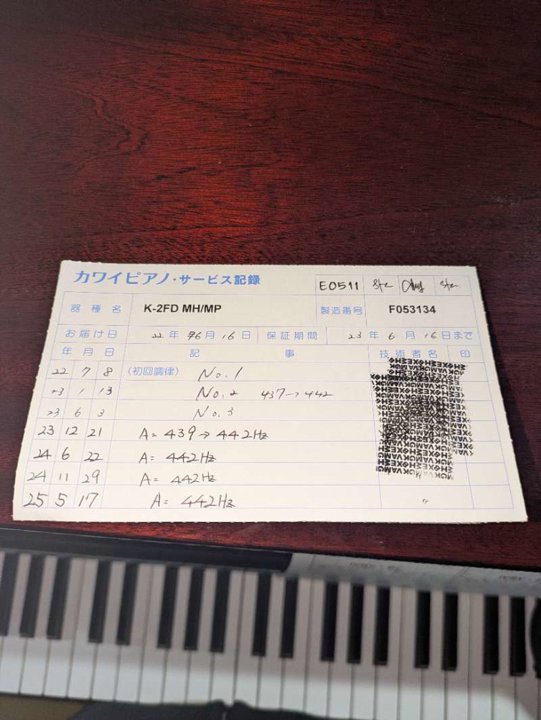 カワイピアノ・サービス記録 E0511
器種名 K-2FD MH/MP 製造番号 F053134
お届け日 22年 6月16日 保証期間 23年6月16日まで
年月日 記事 技術者名 印
22 7 8 (初回調律) No.1
23 1 13 No.2 437→442
23 6 3 No.3
23 12 21 A=439→442Hz
24 6 22 A=442Hz
24 11 29 A=442Hz
25 5 17 A=442Hz